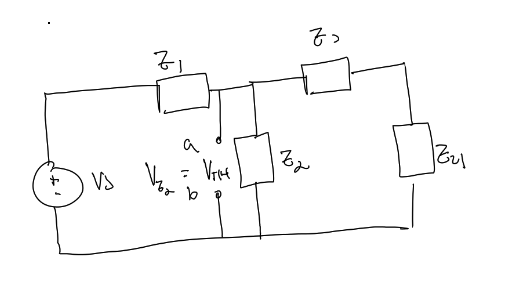 Z1
Z3
a
Vz2 = VTH
b
Z2
ZL1
+
-
Vs